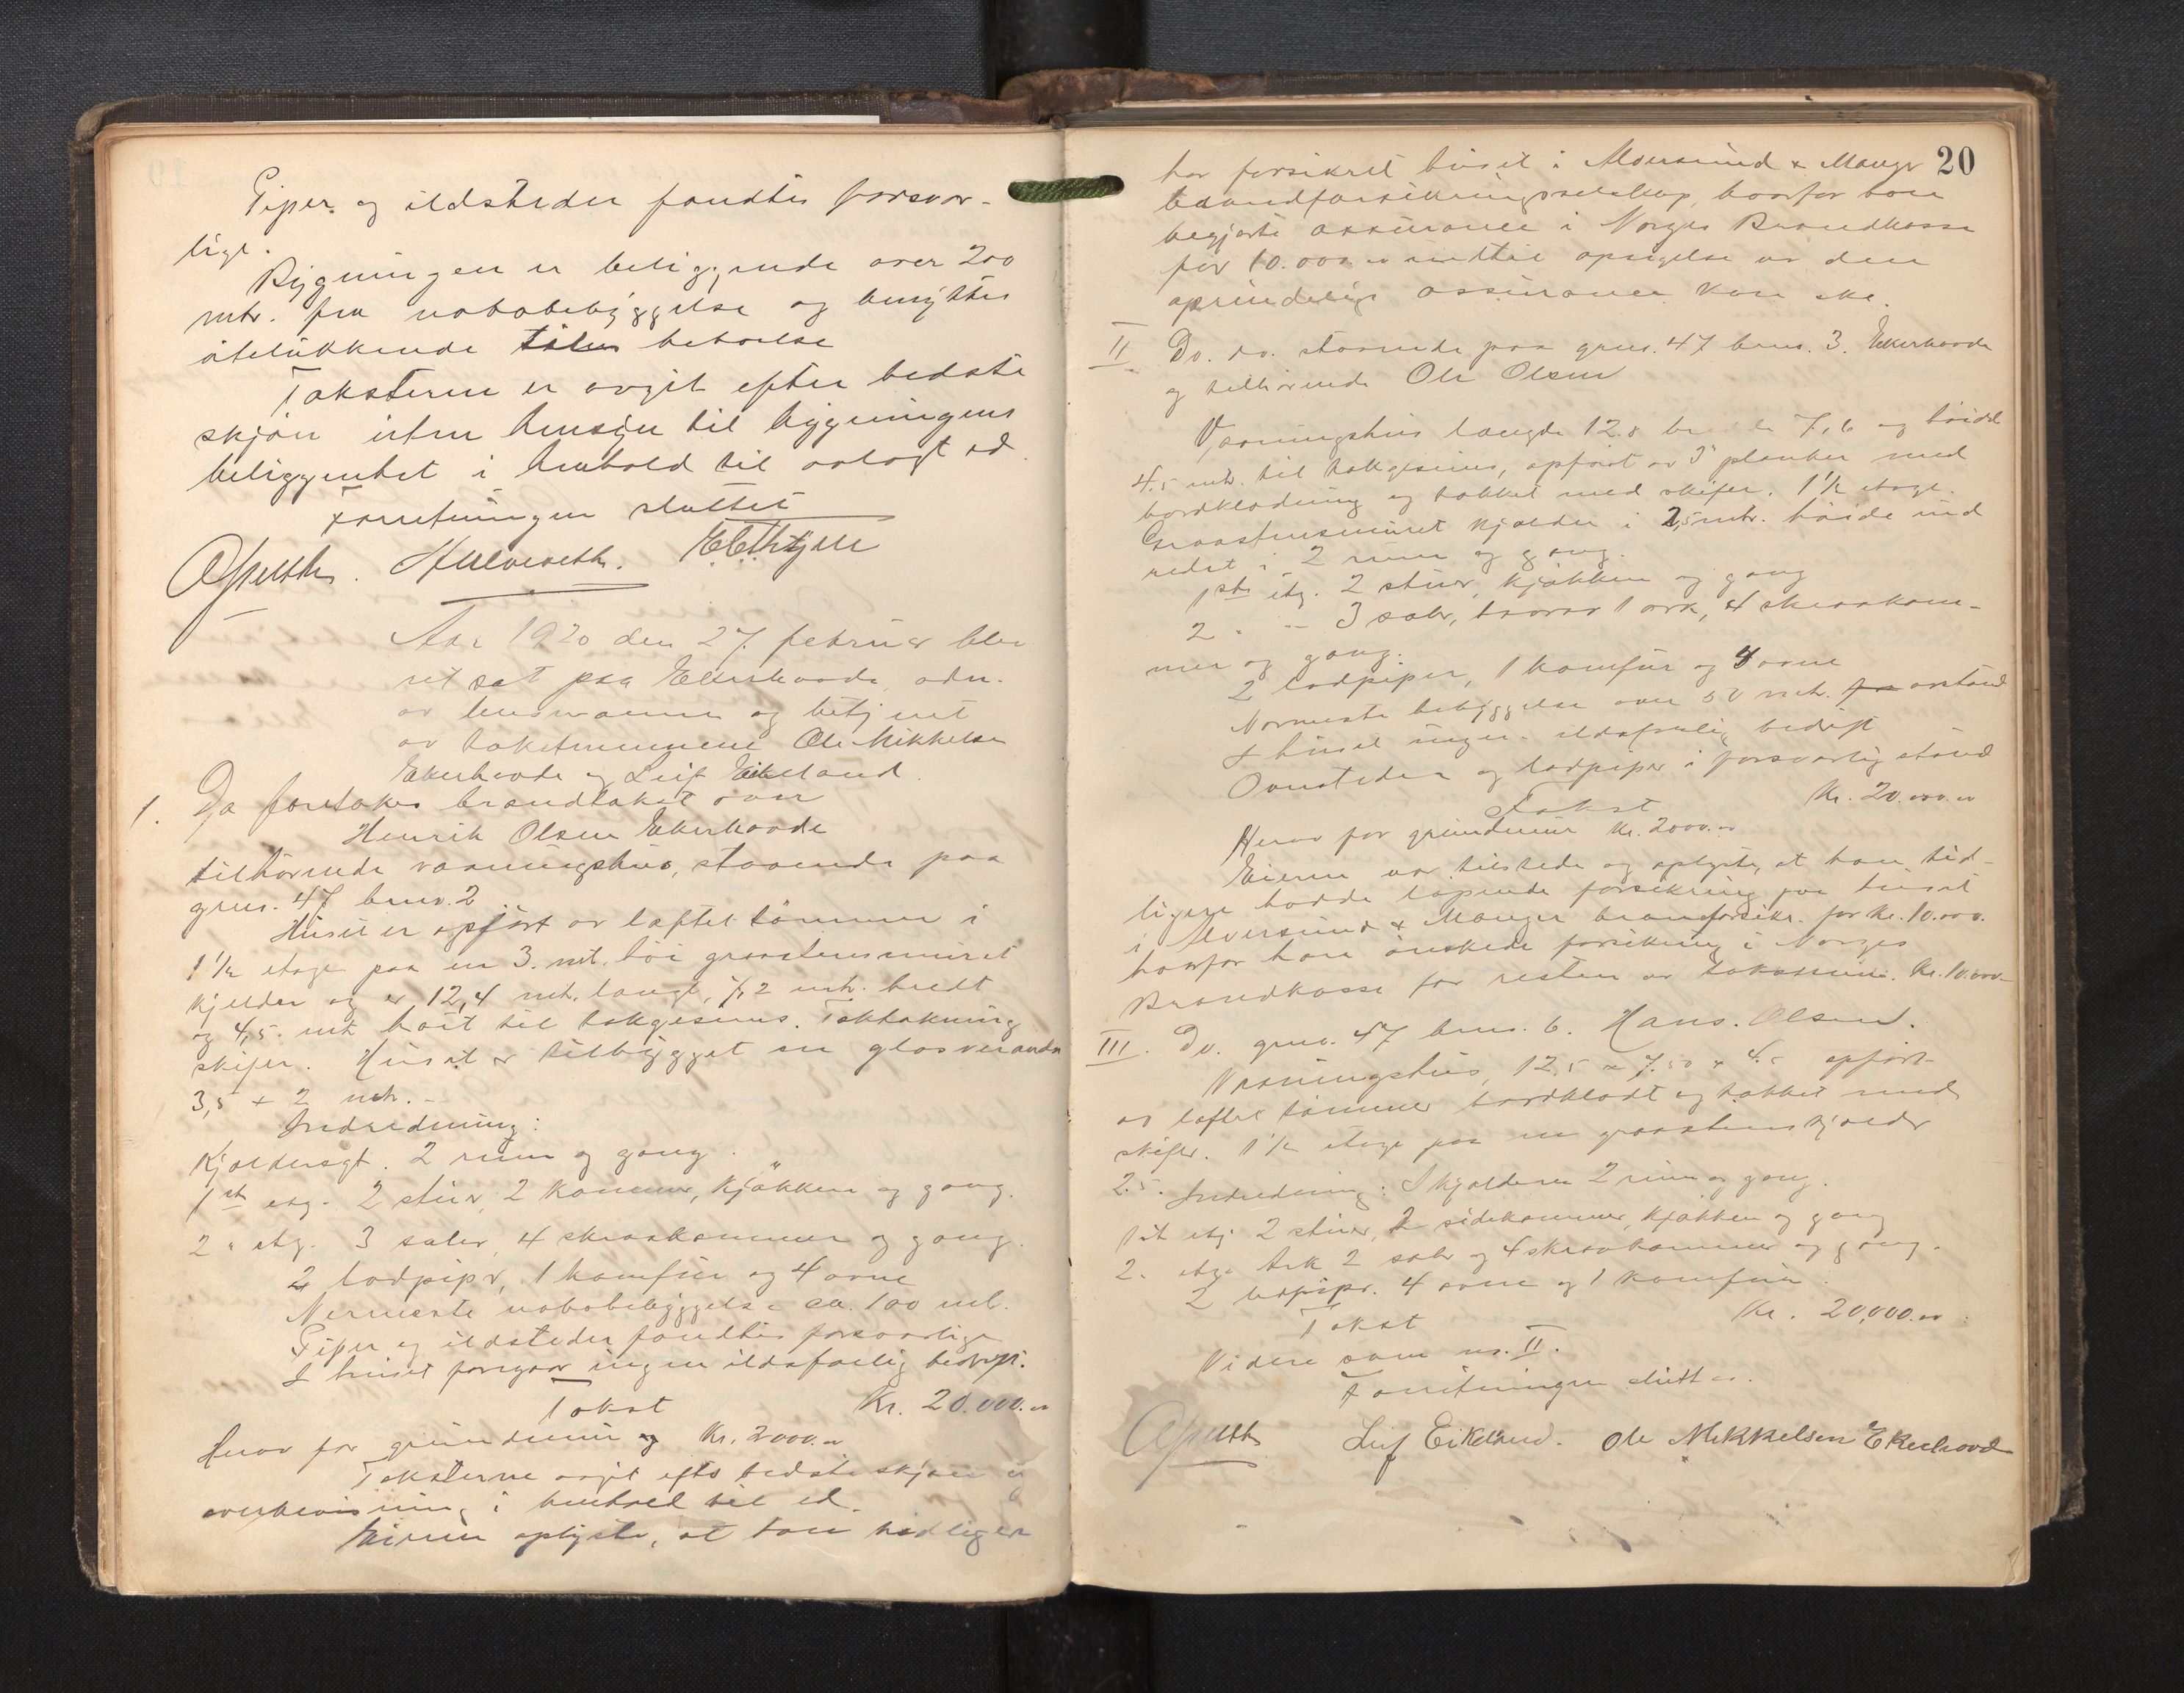 Piper og ildsteder fandtes forsvar-
lige.
Bygningen er beliggende over 200
mtr. fra nabobebyggelse og benyttes
utelukkende til beboelse
Taksterne er avgit efter bedste
skjøn uten hensyn til bygningens
beliggenhet i henhold til avlagt ed.
Forretningen sluttet
Aar 1920 den 27. februar blev
ret sat paa Ekerhovde adm.
av lensmannen og betjent
av takstmennene Ole Mikkelsen
Ekerhovde og Leif Eikeland.
1. Da foretokes brandtakst over
Henrik Olsen Ekerhovde
tilhørende vaaningshus, staaende paa
gnr. 47 bnr. 2
Huset er opført av laftet tømmer i
1 1/2 etage paa en 3. mtr. høi graastensmuret
kjelder og er 12,4 mtr. langt, 7,2 mtr. bredt
og 4,5. mtr høit til takgesims. Taktækning
skifer. Huset er tilbygget en glasveranda
3,5 x 2 mtr. -
Indredning:
Kjælderetg. 2 rum og gang.
1ste etg. 2 stuer, 2 kammer, kjøkken og gang.
2 " etg. 3 saler, 4 skraakammer og gang.
2 ladpiper, 1 komfur og 4 ovne
Nermeste nabobebyggelse ca. 100 mtr.
Piper og ildsteder fandtes forsvarlige
I huset foregaar ingen ildsfarlig bedrift.
Takst Kr. 20.000.00
Herav for grundmur Kr. 2000.00
Taksterne avgit efter bedste skjøn og
overbevisning i henhold til ed.
Eieren oplyste, at han tidligere
20
har forsikret huset i Alversund & Manger
brandforsikringsselskap, hvorfor han
begjærte assurance i Norges Brandkasse
for 10.000.00 indtil opsigelse av den
oprindelige assurance kan ske.
II Do. do. staaende paa gnr. 47 bnr. 3. Ekerhovde
og tilhørende Ole Olsen
Vaaningshus længde 12.8 bredde 7,6 og høide
4.5 mtr. til takgesims, opført av 3" planker med
bordklædning og takket med skifer. 1 1/2 etage.
Graastensmuret kjælder i 2,5 mtr. høide ind
redet i 2 rum og gang.
1ste etg. 2 stuer, kjøkken og gang
2 " - 3 saler, hvorav 1 ark, 4 skraakam-
mer og gang.
2 ladpiper, 1 komfur og 4 ovne
Nermeste bebyggelse over 50 mtr. fra avstand
I huset ingen ildsfarlig bedrift
Ovnsteder og ladpiper i forsvarlig stand
Takst Kr. 20.000.00
Herav for grundmur Kr. 2000.00
Eieren var tilstede og oplyste, at han tid-
ligere hadde løpende forsikring paa huset
i Alversund & Manger brandforsikr. for Kr. 10.000.
hvorfor han ønskede forsikring i Norges
Brandkasse for resten av takstsum. Kr. 10.000-
III. Do. gnr. 47 bnr. 6. Hans Olsen.
Vaaningshus, 12.5 x 7.50 x 4.5 opført
av laftet tømmer bordklædt og takket med
skifer. 1 1/2 etage paa en graastens kjælder
2.5. Indredning: I kjælderen 2 rum og gang.
1ste etg. 2 stuer, 2 sidekammer, kjøkken og gang
2. etg. Ark 2 saler og 4 skraakammer og gang.
2 ladpiper. 4 ovne og 1 komfur.
Takst Kr. 20,000.00
Videre som nr. II.
Forretningen sluttes.
Leif Eikeland. Ole Mikkelsen Ekerhovde